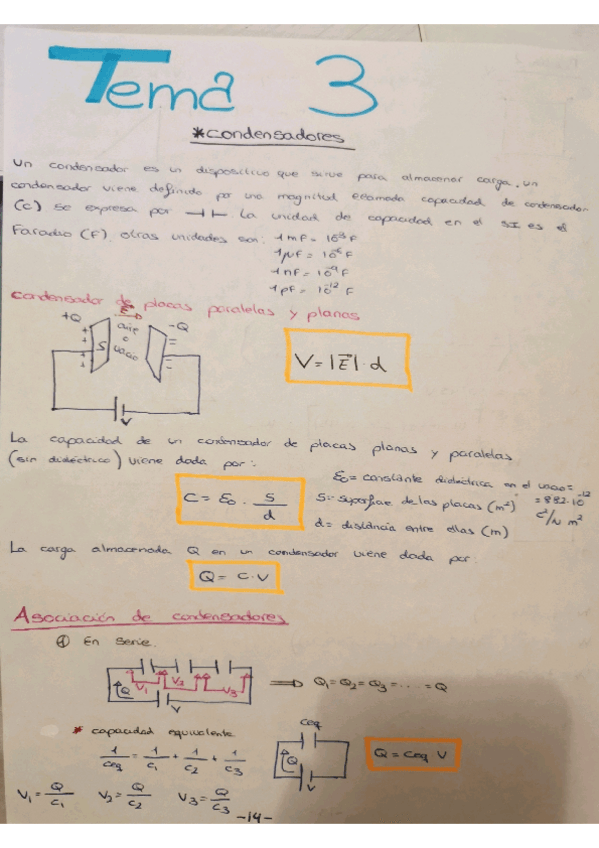 Tema 3
*condensadores
Un condensador es un dispositivo que sirve para almacenar carga. un
condensador viene definido por una magnitud llamada capacidad de condensador
(C) se expresa por ⊣⊢. La unidad de capacidad en el SI es el
Faradio (F). otras unidades son: 1 mF = 10⁻³ F
1 μF = 10⁻⁶ F
1 nF = 10⁻⁹ F
1 pF = 10⁻¹² F
Condensador de placas paralelas y planas
+Q E⃗ -Q
S aire o vacio
V
V = |E⃗| · d
La capacidad de un condensador de placas planas y paralelas
(sin dieléctrico) viene dada por:
C = ε₀ · S/d
ε₀ = constante dieléctrica en el vacio =
= 8'82·10⁻¹² C²/N m²
S = superficie de las placas (m²)
d = distancia entre ellas (m)
La carga almacenada Q en un condensador viene dada por:
Q = C · V
Asociación de condensadores
① En serie.
V₁ V₂ V₃
Q V
⟹ Q₁ = Q₂ = Q₃ = ..... = Q
* capacidad equivalente
1/Ceq = 1/C₁ + 1/C₂ + 1/C₃
Ceq
Q
V
Q = Ceq V
V₁ = Q/C₁ V₂ = Q/C₂ V₃ = Q/C₃
-14-